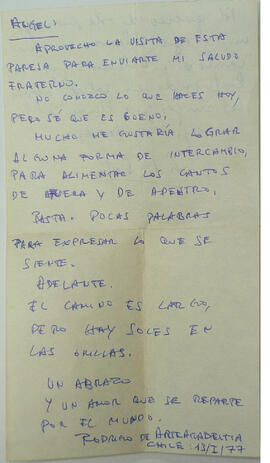 ANGEL:
APROVECHO LA VISITA DE ESTA
PAREJA PARA ENVIARTE MI SALUDO
FRATERNO.
NO CONOZCO LO QUE HACES HOY,
PERO SÉ QUE ES BUENO,
MUCHO ME GUSTARÍA LOGRAR
ALGUNA FORMA DE INTERCAMBIO,
PARA ALIMENTAR LOS CANTOS
DE AFUERA Y DE ADENTRO,
BASTA. POCAS PALABRAS
PARA EXPRESAR LO QUE SE
SIENTE.
ADELANTE.
EL CAMINO ES LARGO,
PERO HAY SOLES EN
LAS ORILLAS.
UN ABRAZO
Y UN AMOR QUE SE REPARTE
POR EL MUNDO.
RODRIGO DE ARTEAGABEITIA
CHILE: 13/I/77